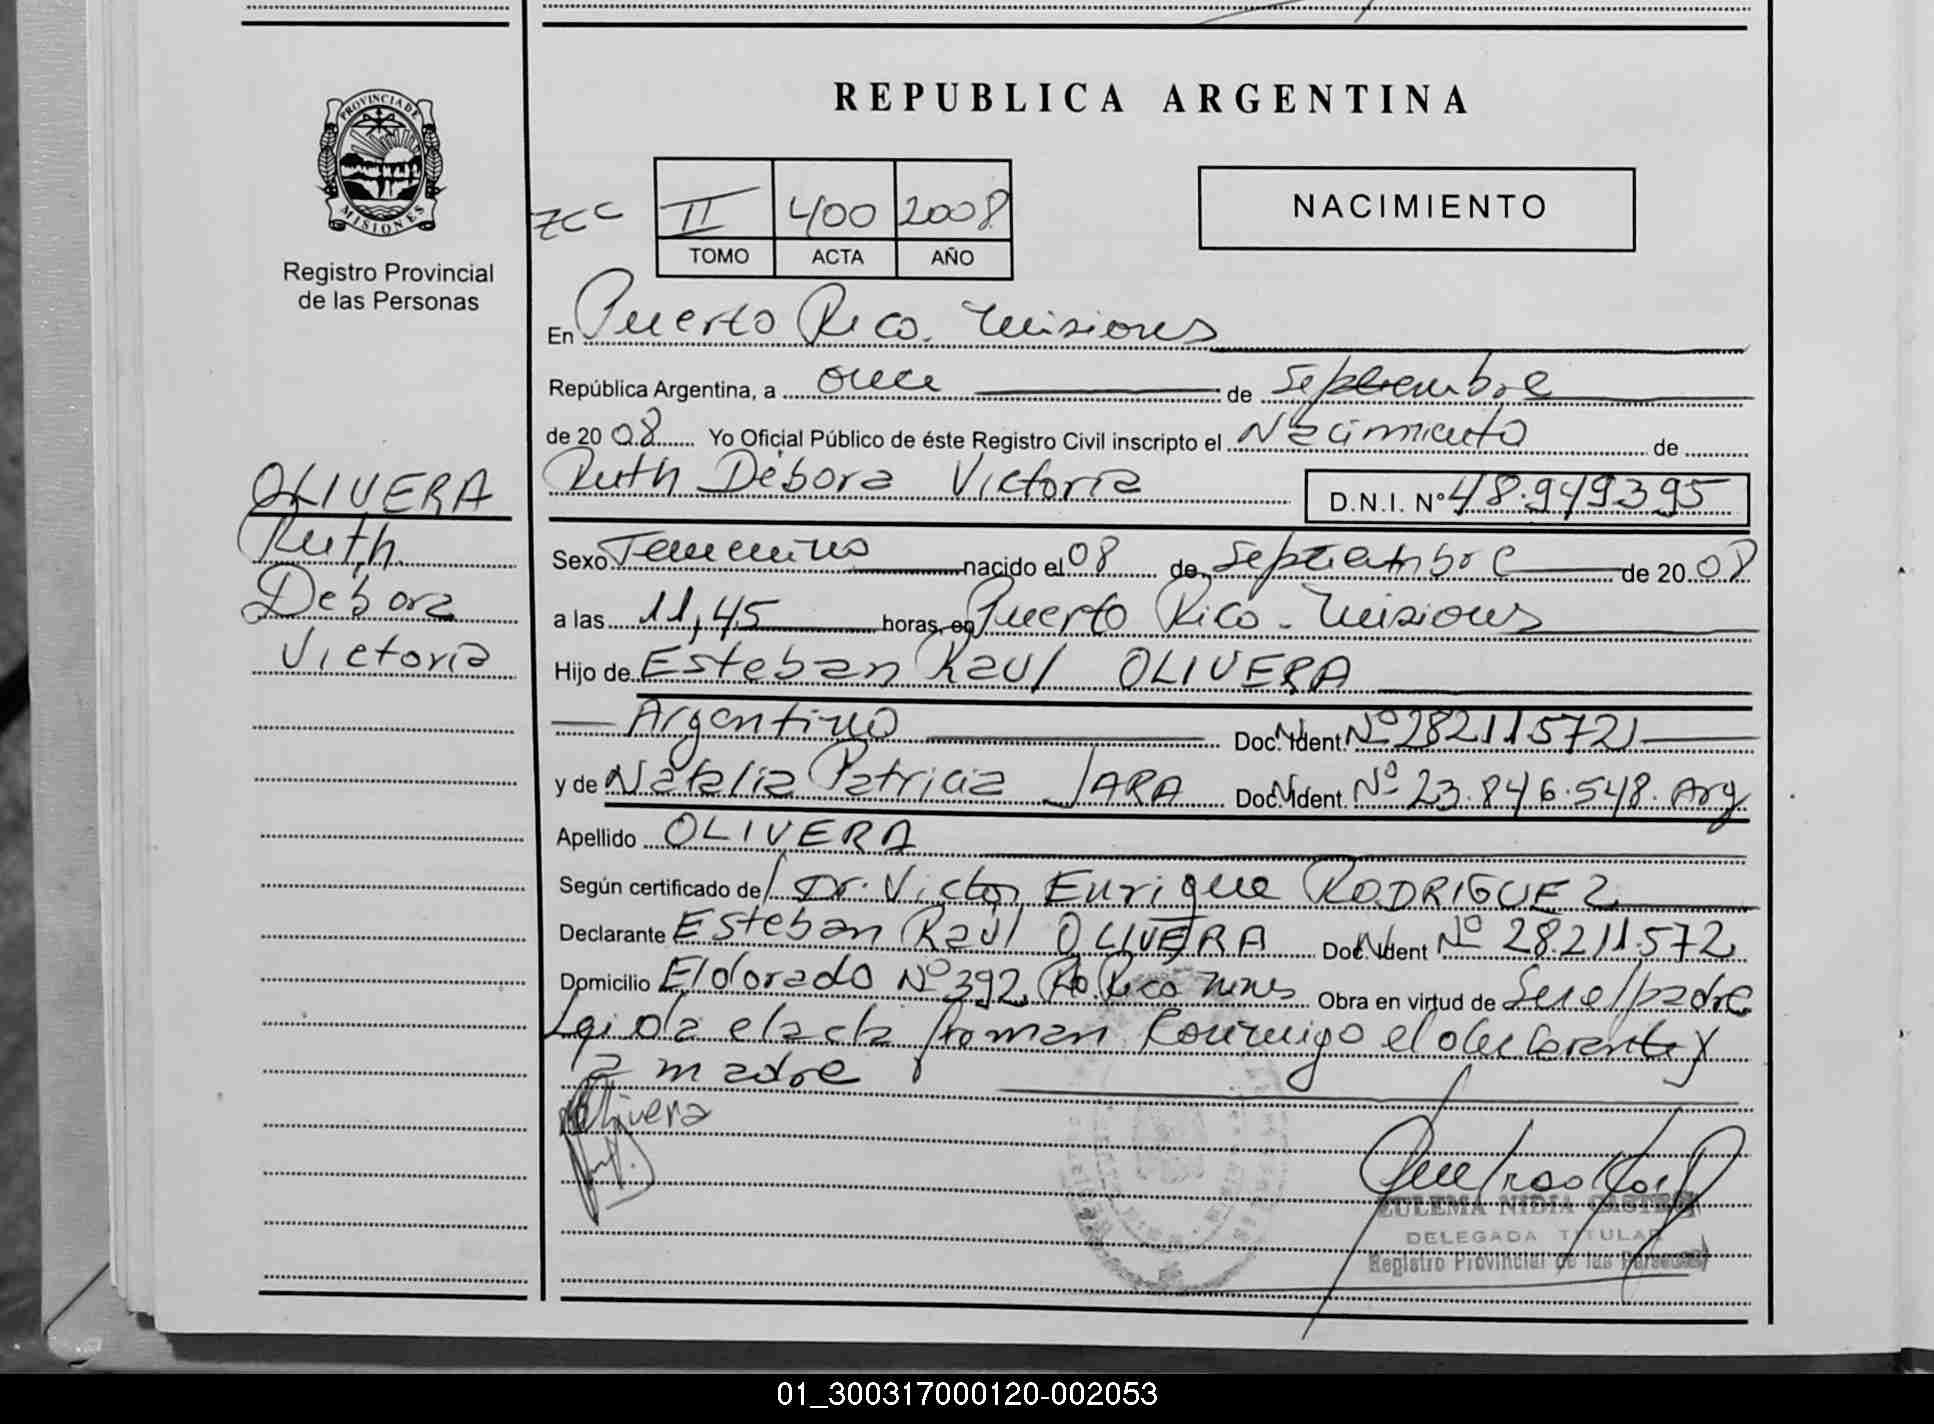 REPUBLICA ARGENTINA
PROVINCIA DE
MISIONES
Registro Provincial
de las Personas
ZCC
II 400 2008
TOMO ACTA AÑO
NACIMIENTO
En Puerto Rico. Misiones
República Argentina, a once de Septiembre
de 2008 Yo Oficial Público de éste Registro Civil inscripto el Nacimiento de
Ruth Débora Victoria D.N.I. Nº 48.949395
OLIVERA
Ruth
Debora
Victoria
Sexo Femenino nacido el 08 de Septiembre de 2008
a las 11,45 horas, en Puerto Rico - Misiones
Hijo de Esteban Raul OLIVERA
Argentino Doc. Ident. Nº 28211572
y de Natalia Patricia JARA Doc. Ident. Nº 23.846.548. Arg
Apellido OLIVERA
Según certificado de Dr. Victor Enrique RODRIGUEZ
Declarante Esteban Raul OLIVERA Doc. Ident Nº 28.211.572
Domicilio Eldorado Nº 392 Pto. Rico Mnes Obra en virtud de Ser el padre
Leida el acta firman conmigo el declarante y
la madre
Olivera
ZULEMA NIDIA CASTRO
DELEGADA TITULAR
Registro Provincial de las Personas
01_300317000120-002053